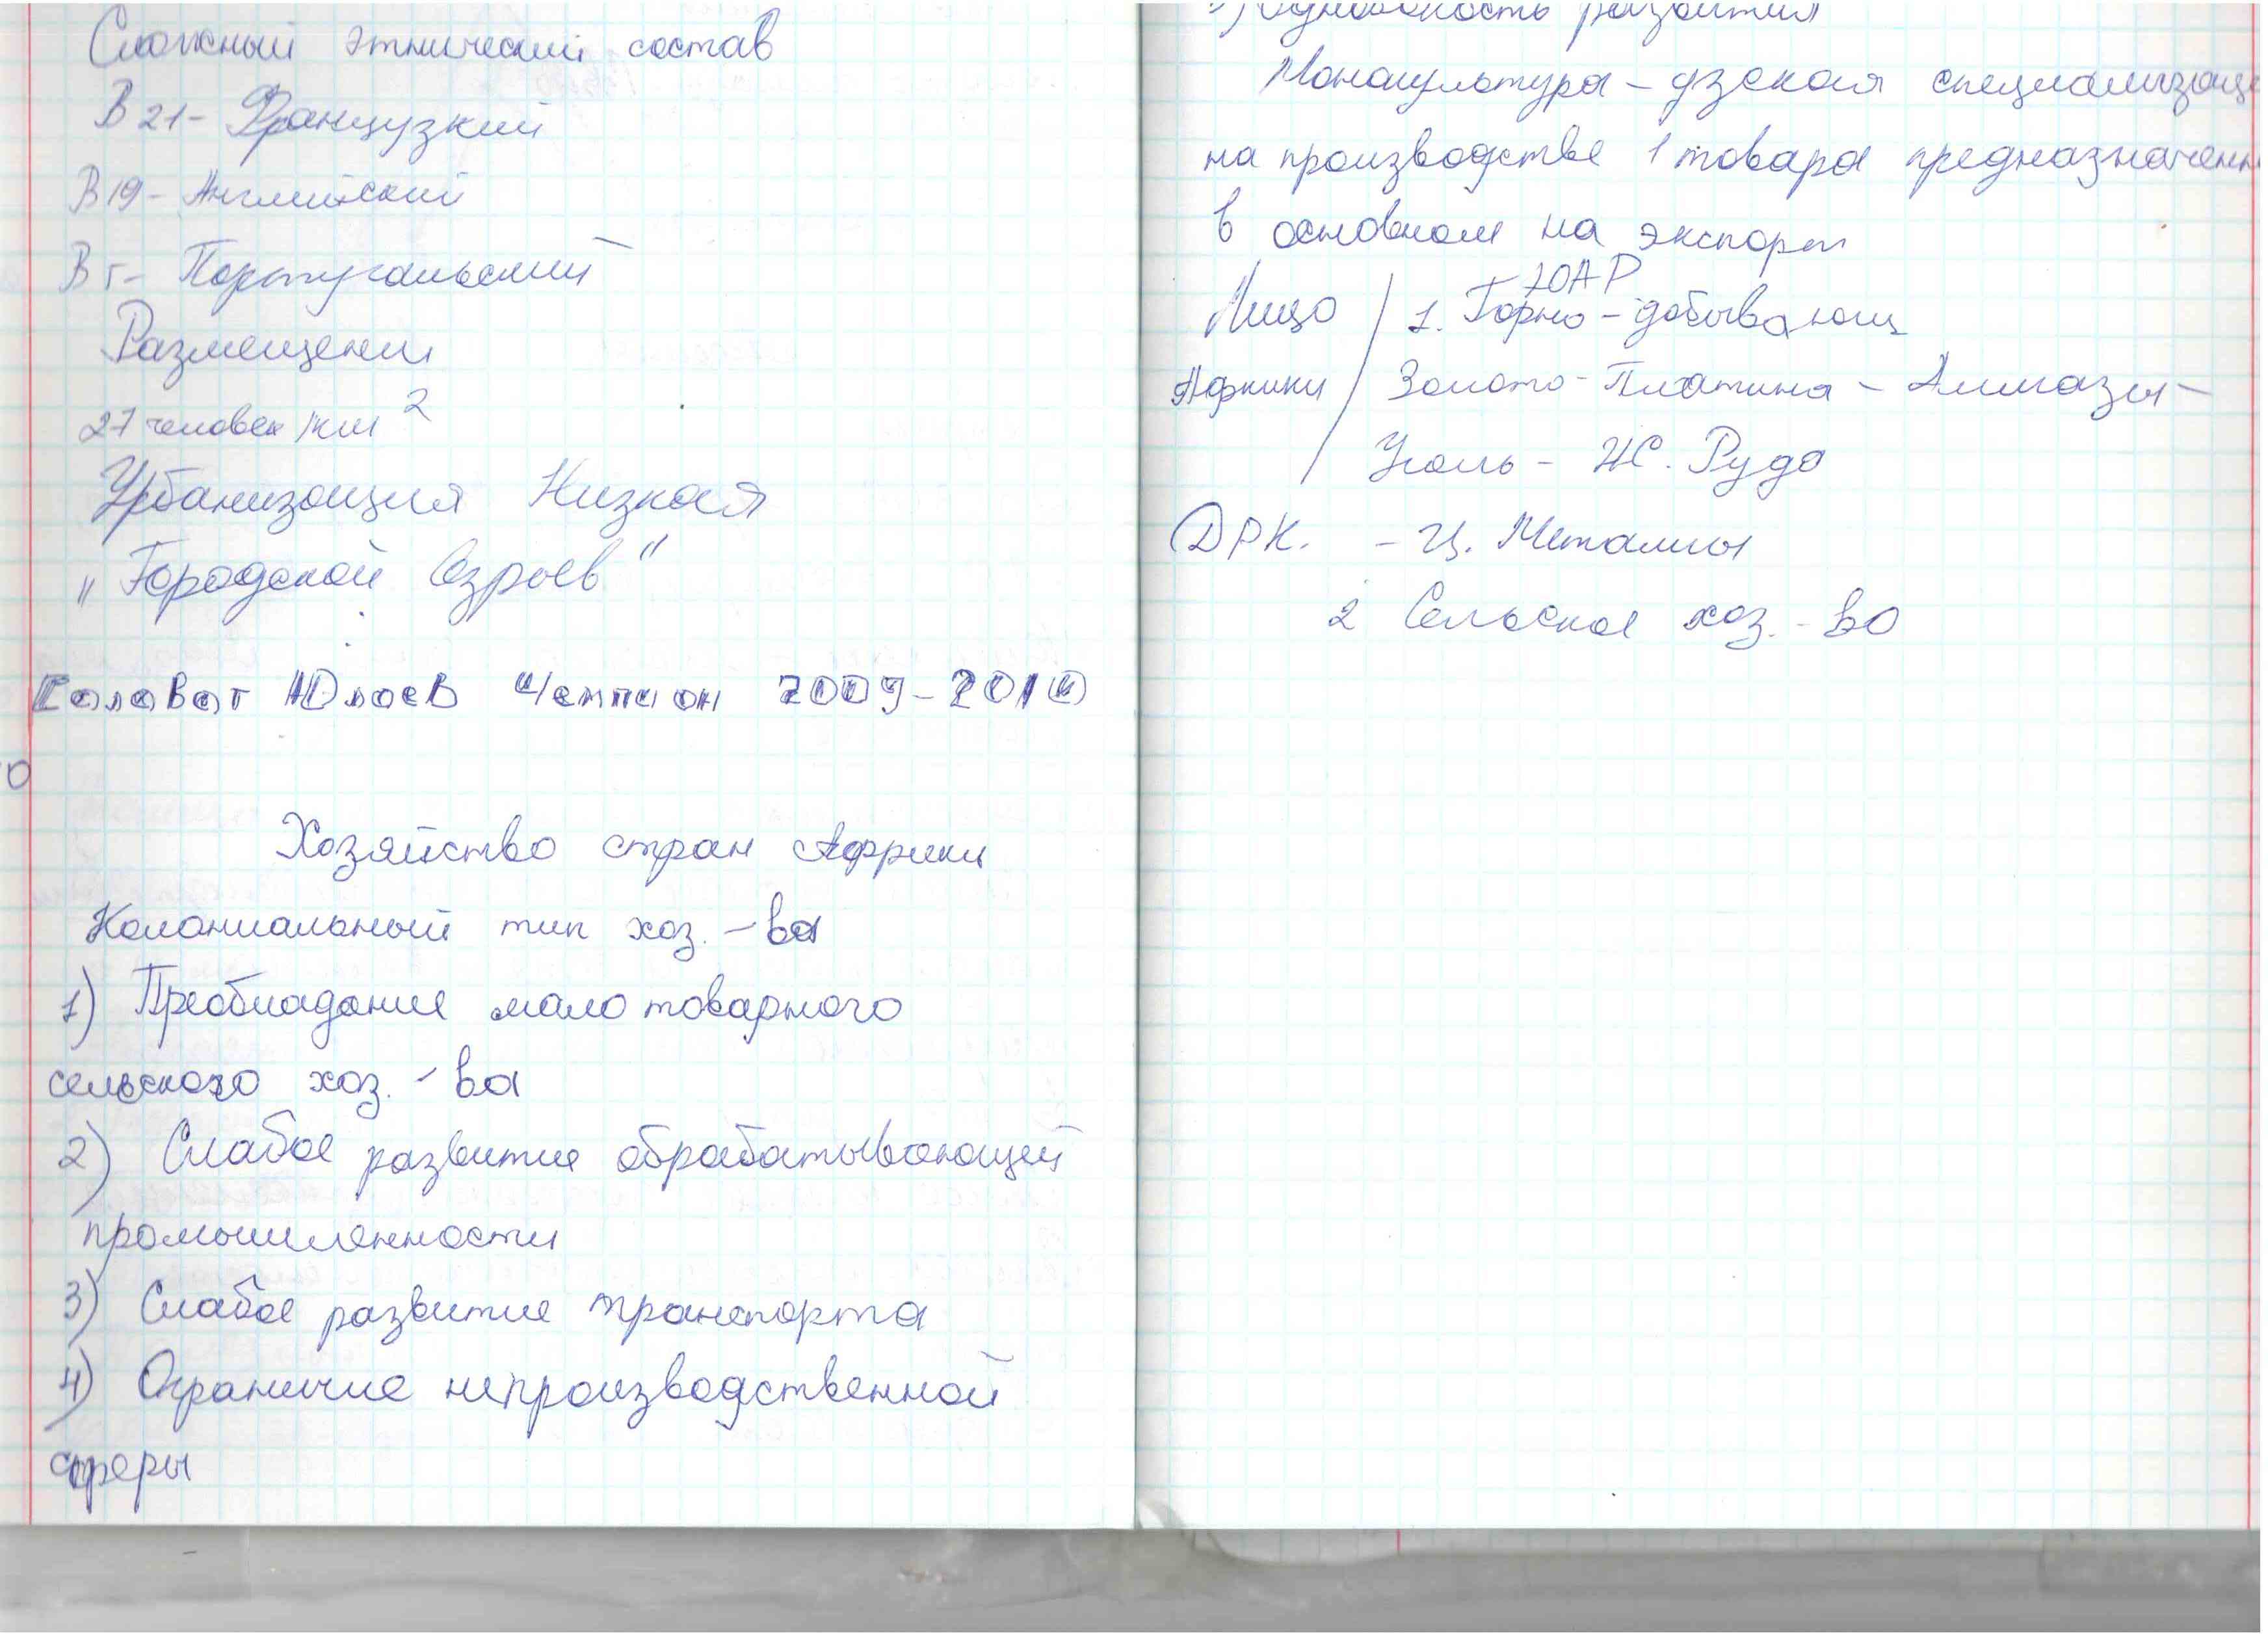 Сложный этнический состав
В 21 - Французкий
В 19 - Английский
В 5 - Португальский
Размещении
27 человек/км 2
Урбанизация Низкая
„Городской Взрыв"
Салават Юлаев Чемпион 2009-2010
Хозяйство стран Африки
Колониальный тип хоз.-ва
1) Преобладание мало товарного
сельского хоз.-ва
2) Слабое развитие обрабатывающей
промышленности
3) Слабое развитие транспорта
4) Ограничие непроизводственной
сферы
развития
Монокультура - узская специализаци
на производстве 1 товара предназначенн
в основном на экспорт
ЮАР
Лицо / 1. Горно-добывающ
Африки / Золото - Платина - Алмазы -
/ Уголь - Ж. Руда
ДРК. - Ц. Металлы
2 Сельское хоз.-во